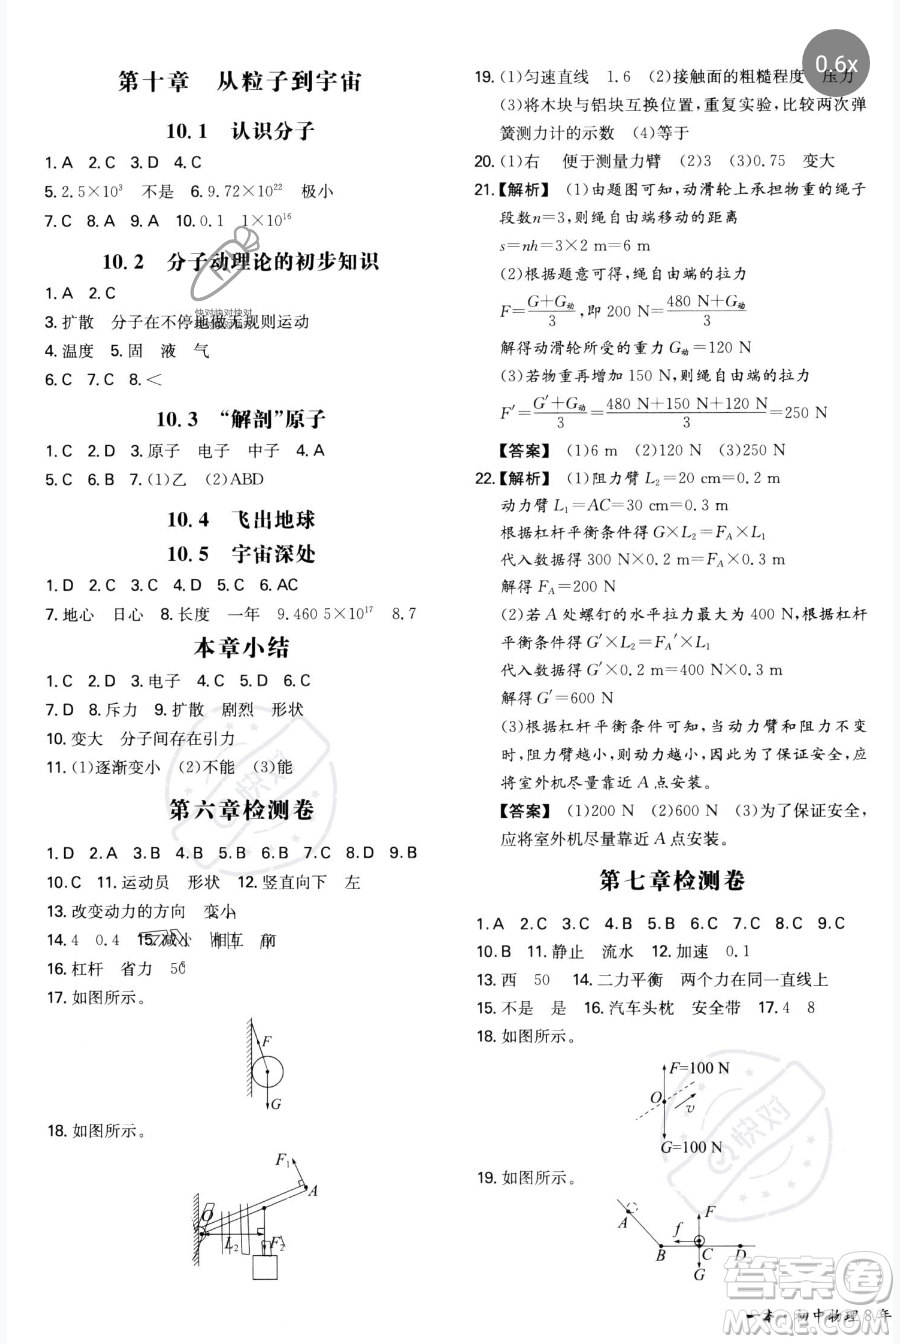 第十章　从粒子到宇宙
10.1　认识分子
1.A　2.C　3.D　4.C
5.2.5×10³　不是　6.9.72×10²²　极小
7.C　8.A　9.A　10.0.1　1×10¹⁶
10.2　分子动理论的初步知识
1.A　2.C
3.扩散　分子在不停地做无规则运动
4.温度　5.固　液　气
6.C　7.C　8.＜
10.3　“解剖”原子
1.C　2.C　3.原子　电子　中子　4.A
5.C　6.B　7.(1)乙　(2)ABD
10.4　飞出地球
10.5　宇宙深处
1.D　2.B　3.D　4.D　5.C　6.AC
7.地心　日心　8.长度　一年　9.460 5×10¹⁷　8.7
本章小结
1.C　2.D　3.电子　4.C　5.D　6.C
7.D　8.斥力　9.扩散　剧烈　形状
10.变大　分子间存在引力
11.(1)逐渐变小　(2)不能　(3)能
第六章检测卷
1.D　2.A　3.B　4.B　5.B　6.B　7.D　8.D　9.B
10.C　11.运动员　形状　12.竖直向下　左
13.改变动力的方向　变小
14.4　0.4　15.减小　相互　前
16.杠杆　省力　50
17.如图所示。
F
G
18.如图所示。
F₁
A
O
L₂
F₂
19.(1)匀速直线　1.6　(2)接触面的粗糙程度　压力
(3)将木块与铝块互换位置，重复实验，比较两次弹
簧测力计的示数　(4)等于
20.(1)右　便于测量力臂　(2)3　(3)0.75　变大
21.【解析】　(1)由题图可知，动滑轮上承担物重的绳子
段数n=3，则绳自由端移动的距离
s=nh=3×2 m=6 m
(2)根据题意可得，绳自由端的拉力
F=(G+G动)/3，即 200 N=(480 N+G动)/3
解得动滑轮所受的重力 G动=120 N
(3)若物重再增加 150 N，则绳自由端的拉力
F′=(G′+G动)/3=(480 N+150 N+120 N)/3=250 N
【答案】　(1)6 m　(2)120 N　(3)250 N
22.【解析】　(1)阻力臂 L₂=20 cm=0.2 m
动力臂 L₁=AC=30 cm=0.3 m
根据杠杆平衡条件得 G×L₂=F_A×L₁
代入数据得 300 N×0.2 m=F_A×0.3 m
解得 F_A=200 N
(2)若 A 处螺钉的水平拉力最大为 400 N，根据杠杆
平衡条件得 G′×L₂=F_A′×L₁
代入数据得 G′×0.2 m=400 N×0.3 m
解得 G′=600 N
(3)根据杠杆平衡条件可知，当动力臂和阻力不变
时，阻力臂越小，则动力越小，因此为了保证安全，应
将室外机尽量靠近 A 点安装。
【答案】　(1)200 N　(2)600 N　(3)为了保证安全，
应将室外机尽量靠近 A 点安装。
第七章检测卷
1.A　2.C　3.C　4.B　5.B　6.C　7.C　8.C　9.C
10.B　11.静止　流水　12.加速　0.1
13.西　50　14.二力平衡　两个力在同一直线上
15.不是　是　16.汽车头枕　安全带　17.4　8
18.如图所示。
F=100 N
O
v
G=100 N
19.如图所示。
A
F
f
B
C
D
G
一本·初中物理 8年
0.6x
快对
快对
答案圈